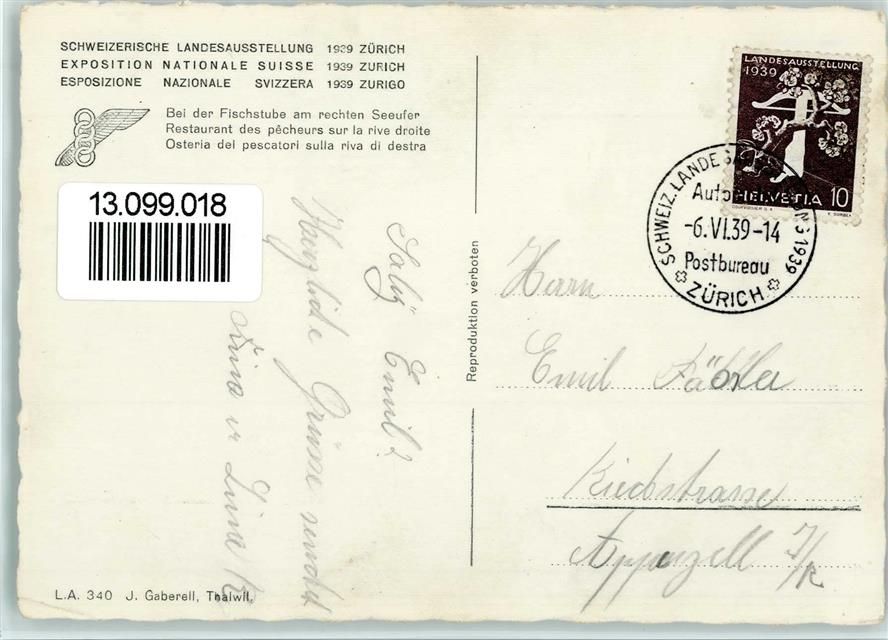 SCHWEIZERISCHE LANDESAUSSTELLUNG 1939 ZÜRICH
EXPOSITION NATIONALE SUISSE 1939 ZURICH
ESPOSIZIONE NAZIONALE SVIZZERA 1939 ZURIGO
Bei der Fischstube am rechten Seeufer
Restaurant des pêcheurs sur la rive droite
Osteria dei pescatori sulla riva di destra
13.099.018
Saly Emil?
Herzliche Grüsse sendet
Lina
Reproduktion verboten
LANDESAUSSTELLUNG
1939
HELVETIA 10
SCHWEIZ. LANDESAUSSTELLUNG 1939
-6.VI.39-14
Postbureau
ZÜRICH
Herrn
Emil
Riedstrasse
Appenzell I/R
L.A. 340 J. Gaberell, Thalwil.